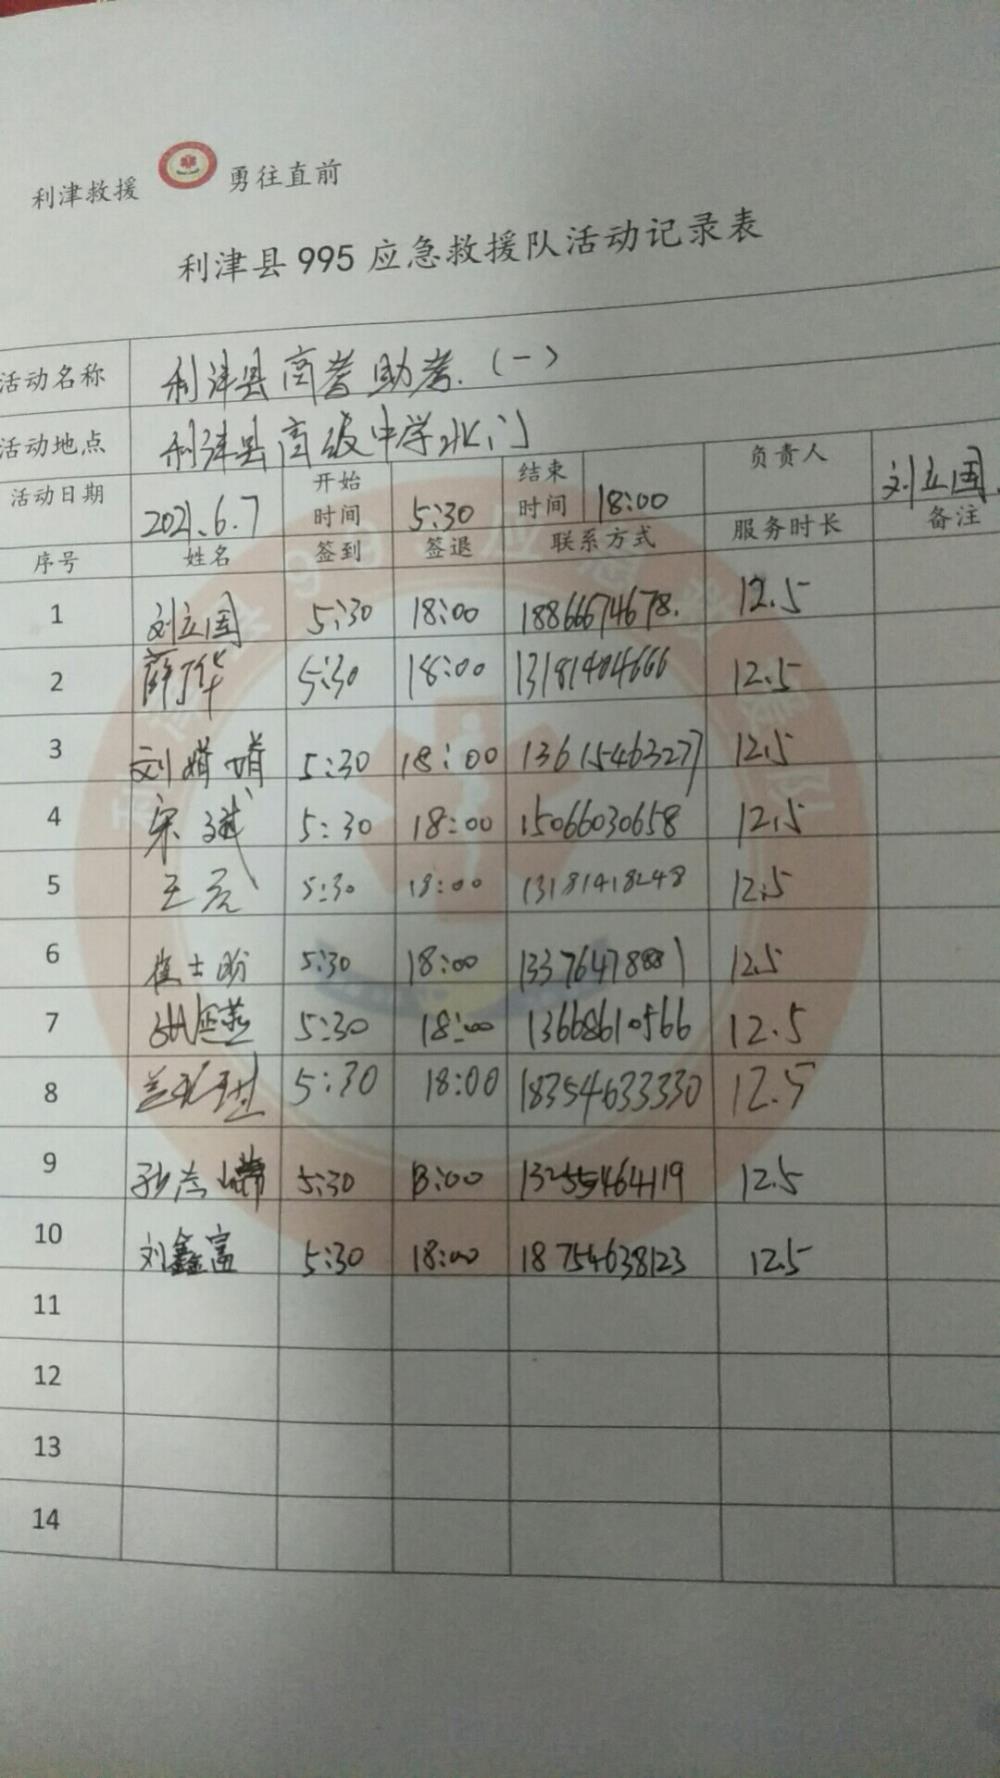 利津救援 勇往直前
利津县995应急救援队活动记录表
活动名称 利津县高考助考.(一)
活动地点 利津县高级中学北门
活动日期 2021.6.7 开始时间 5:30 结束时间 18:00 负责人 刘立国.
序号 姓名 签到 签退 联系方式 服务时长 备注
1 刘立国 5:30 18:00 18866674678. 12.5
2 薛华 5:30 18:00 13181404666 12.5
3 刘婧婧 5:30 18:00 13615463277 12.5
4 宋斌 5:30 18:00 15066030658 12.5
5 王亮 5:30 18:00 13181418248 12.5
6 崔士 5:30 18:00 12.5
7 5:30 18:00 13668610566 12.5
8 5:30 18:00 18354633330 12.5
9 孙 5:30 18:00 13255464119 12.5
10 刘鑫富 5:30 18:00 18754638123 12.5
11
12
13
14